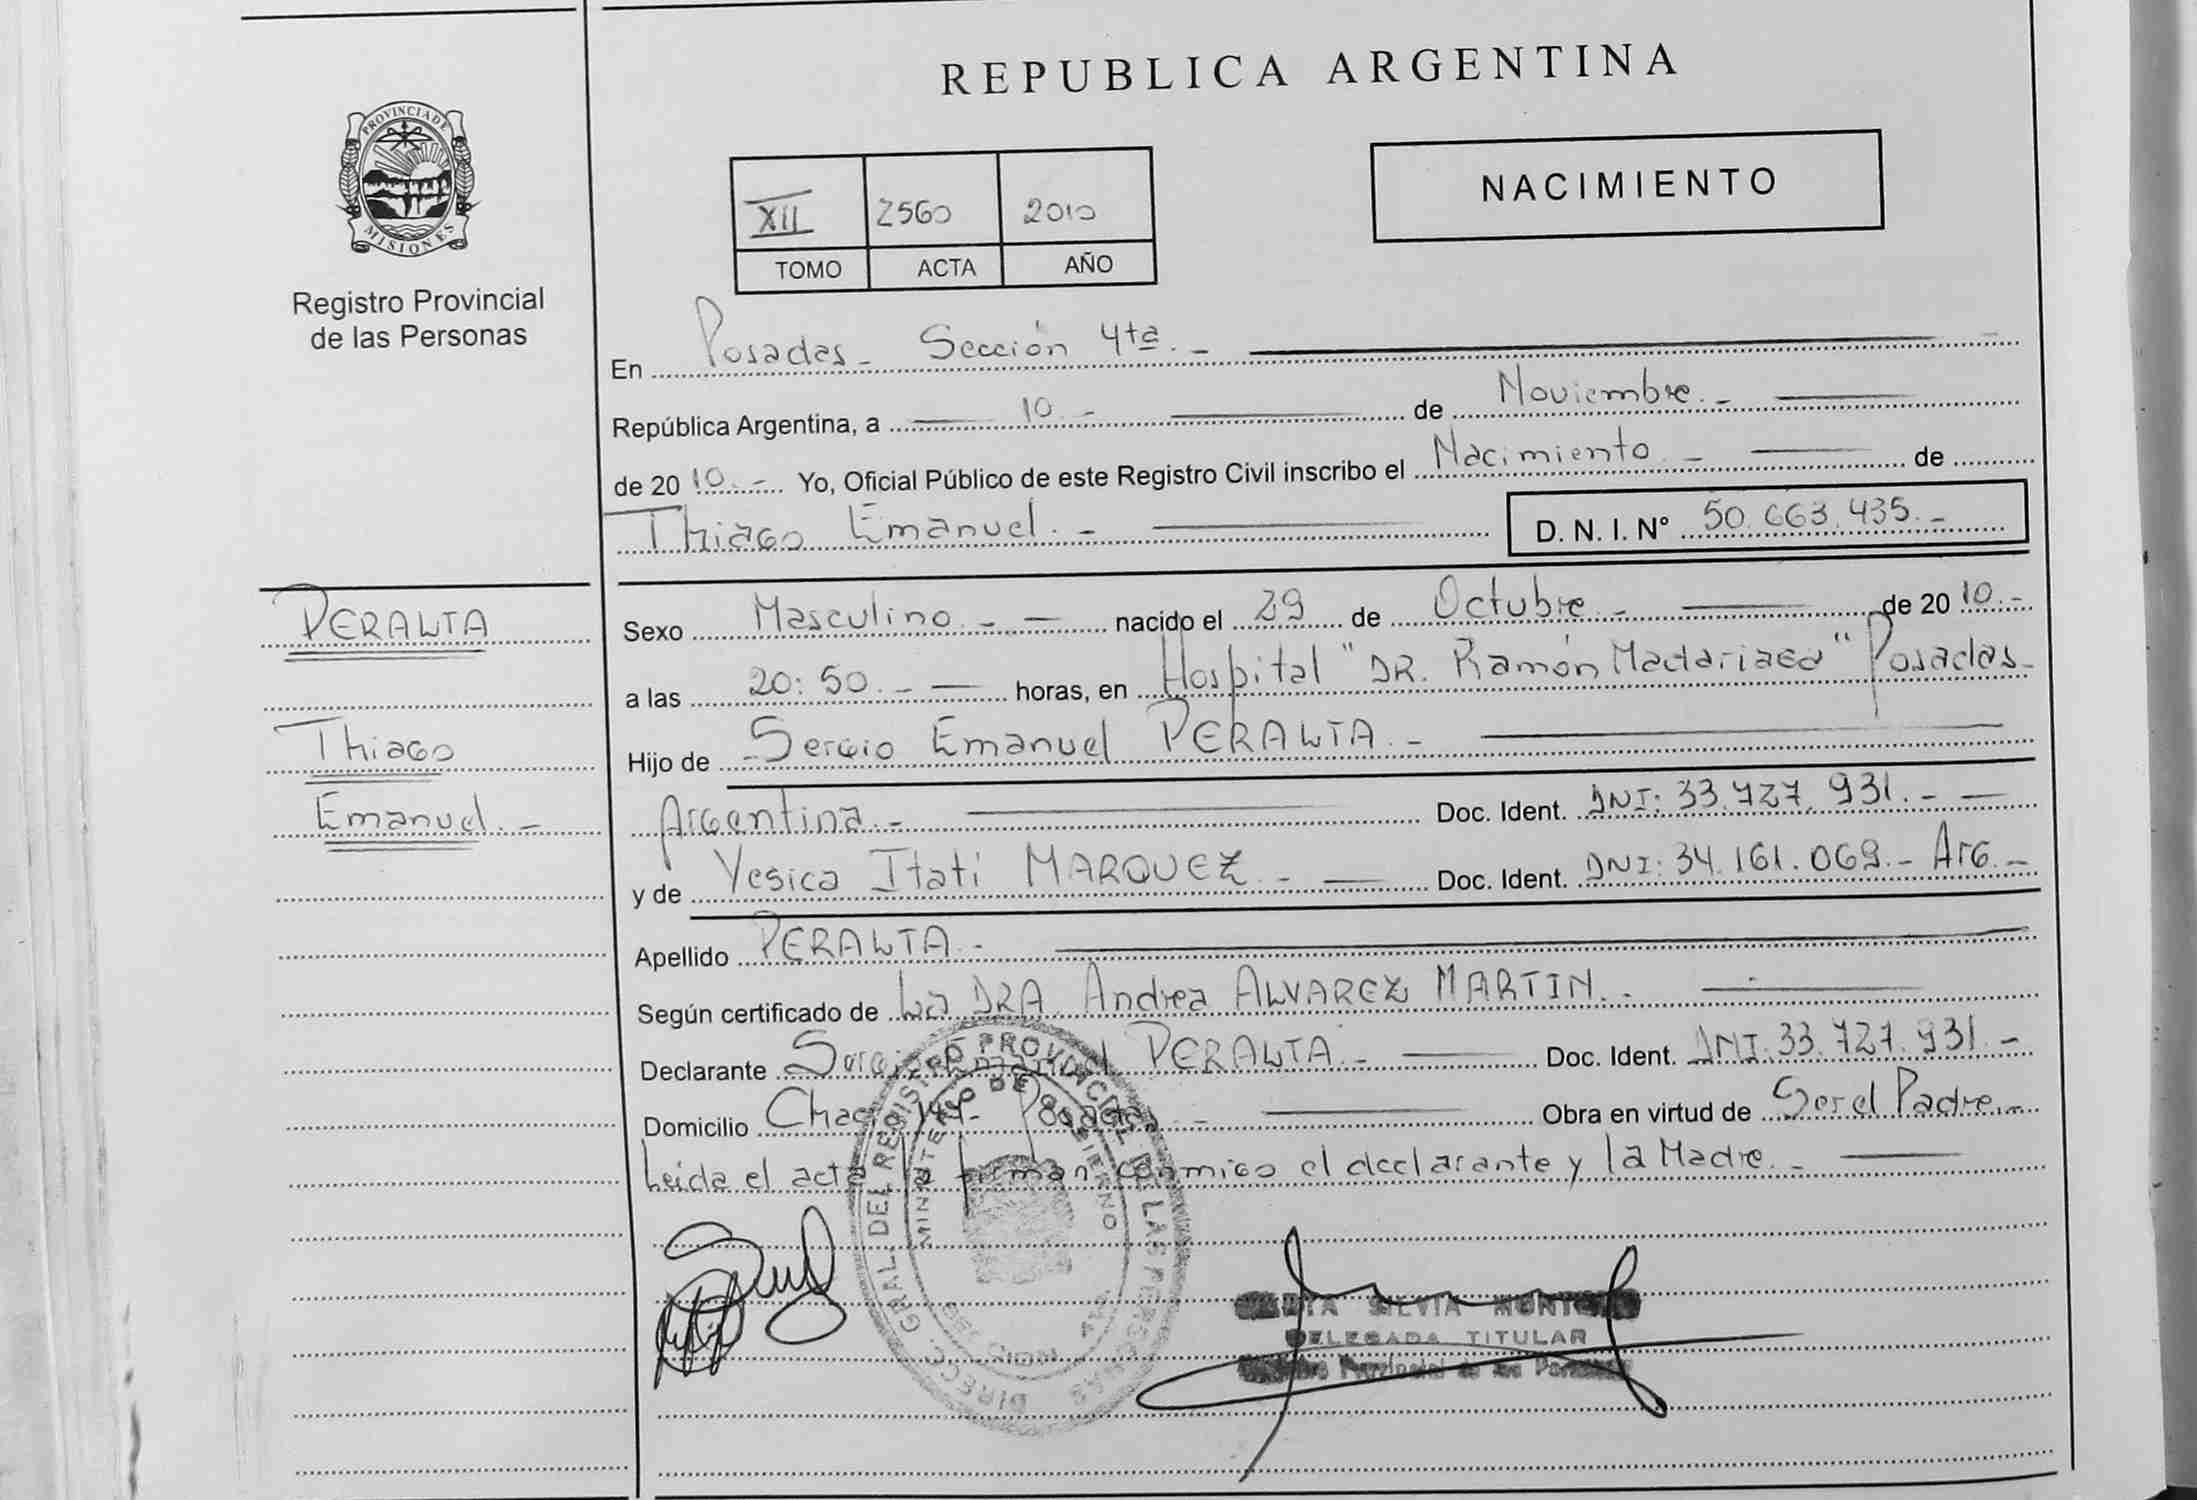 REPUBLICA ARGENTINA
PROVINCIA DE
MISIONES
Registro Provincial
de las Personas
NACIMIENTO
XII 2560 2010
TOMO ACTA AÑO
En Posadas - Sección 4ta. -
República Argentina, a 10. - de Noviembre. -
de 20 10. - Yo, Oficial Público de este Registro Civil inscribo el Nacimiento. - de
Thiago Emanuel. - D. N. I. Nº 50.663.435. -
PERALTA
Thiago
Emanuel. -
Sexo Masculino. - nacido el 29 de Octubre. - de 20 10. -
a las 20:50. - horas, en Hospital "DR. Ramón Madariaga" Posadas -
Hijo de Sergio Emanuel PERALTA. -
Argentina. - Doc. Ident. DNI: 33.727.931. -
y de Yesica Itati MARQUEZ. - Doc. Ident. DNI: 34.161.069. - Arg. -
Apellido PERALTA. -
Según certificado de La DRA. Andrea ALVAREZ MARTIN. -
Declarante Sergio Emanuel PERALTA. - Doc. Ident. DNI. 33.727.931. -
Domicilio Posadas. - Obra en virtud de Ser el Padre. -
Leida el acta la firman conmigo el declarante y la Madre. -
DIRECC. GRAL. DEL REGISTRO PROVINCIAL DE LAS PERSONAS
MINISTERIO DE GOBIERNO
SILVIA
DELEGADA TITULAR
Provincial de las Personas